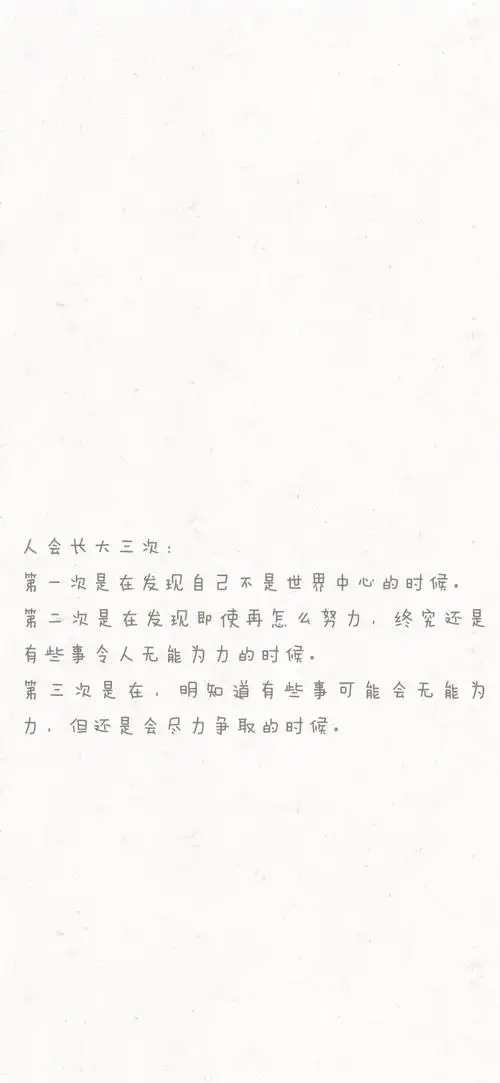 人会长大三次：
第一次是在发现自己不是世界中心的时候。
第二次是在发现即使再怎么努力，终究还是
有些事令人无能为力的时候。
第三次是在，明知道有些事可能会无能为
力，但还是会尽力争取的时候。